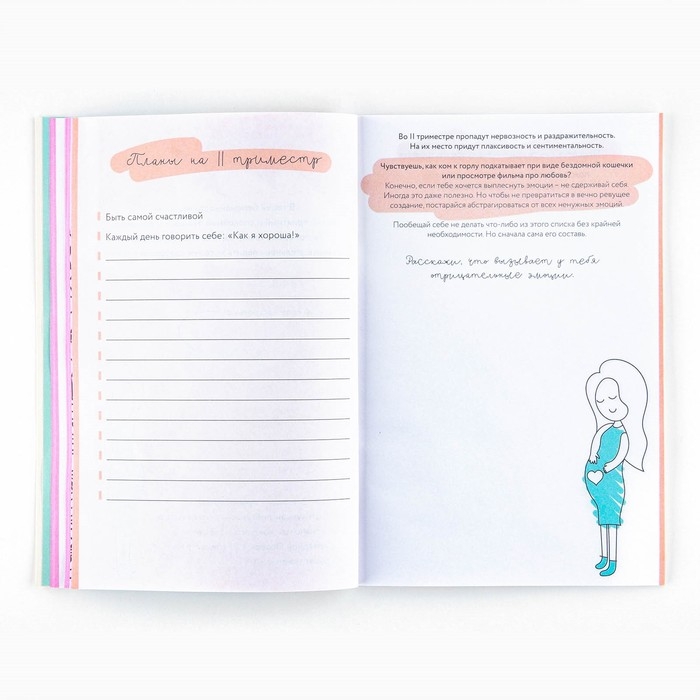 Планы на II триместр
Быть самой счастливой
Каждый день говорить себе: «Как я хороша!»
Во II триместре пропадут нервозность и раздражительность.
На их место придут плаксивость и сентиментальность.
Чувствуешь, как ком к горлу подкатывает при виде бездомной кошечки
или просмотре фильма про любовь?
Конечно, если тебе хочется выплеснуть эмоции – не сдерживай себя.
Иногда это даже полезно. Но чтобы не превратиться в вечно ревущее
создание, постарайся абстрагироваться от всех ненужных эмоций.
Пообещай себе не делать что-либо из этого списка без крайней
необходимости. Но сначала сама его составь.
Расскажи, что вызывает у тебя
отрицательные эмоции.